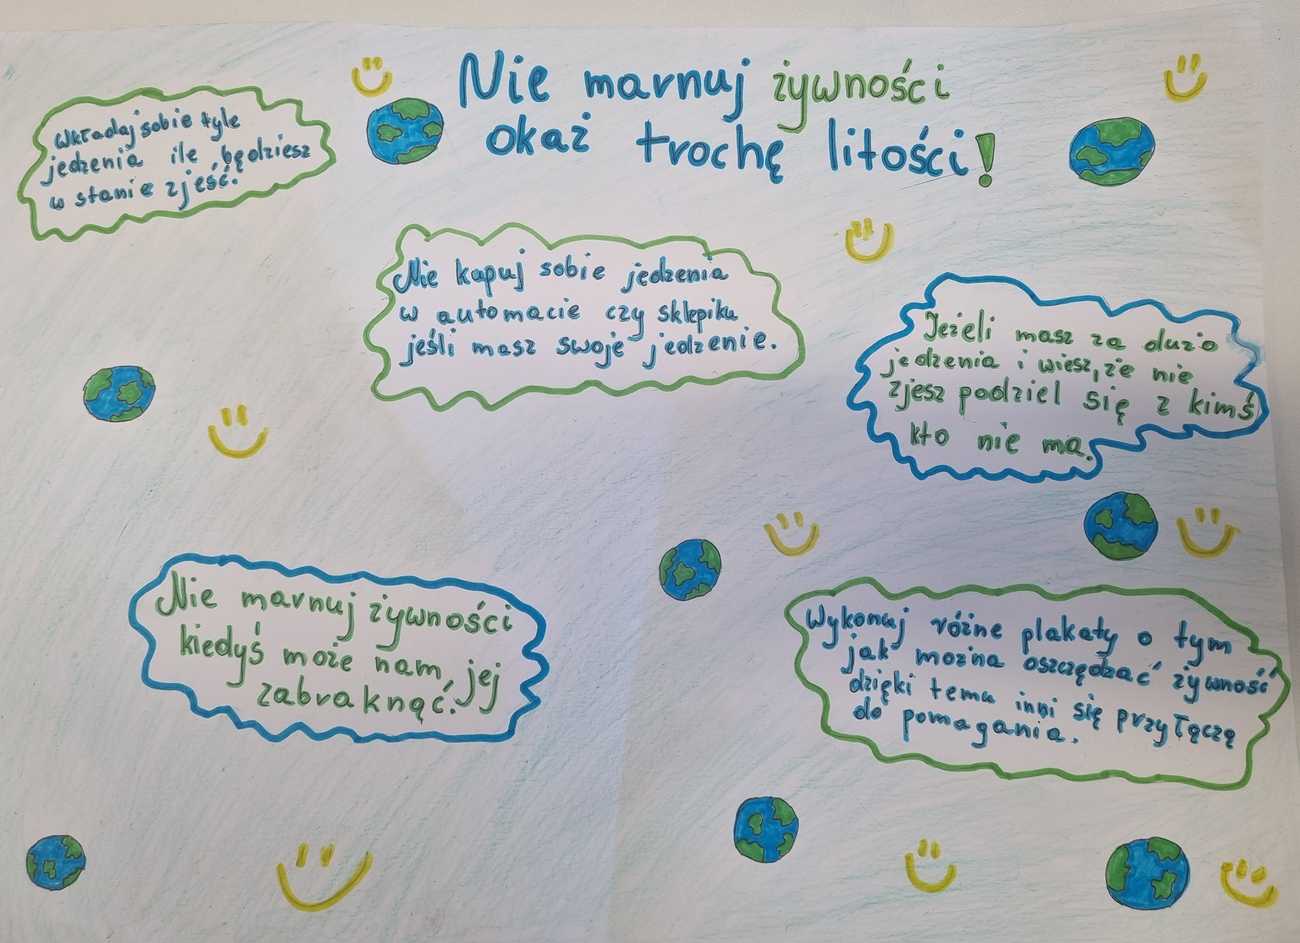 Nie marnuj żywności
okaż trochę litości!
Wkładaj sobie tyle
jedzenia ile będziesz
w stanie zjeść.
Nie kapuj sobie jedzenia
w automacie czy sklepiku
jeśli masz swoje jedzenie.
Jeżeli masz za dużo
jedzenia i wiesz, że nie
zjesz podziel się z kimś
kto nie ma.
Nie marnuj żywności
kiedyś może nam, jej
zabraknąć.
Wykonuj różne plakaty o tym
jak można oszczędzać żywność
dzięki temu inni się przyłączą
do pomagania.